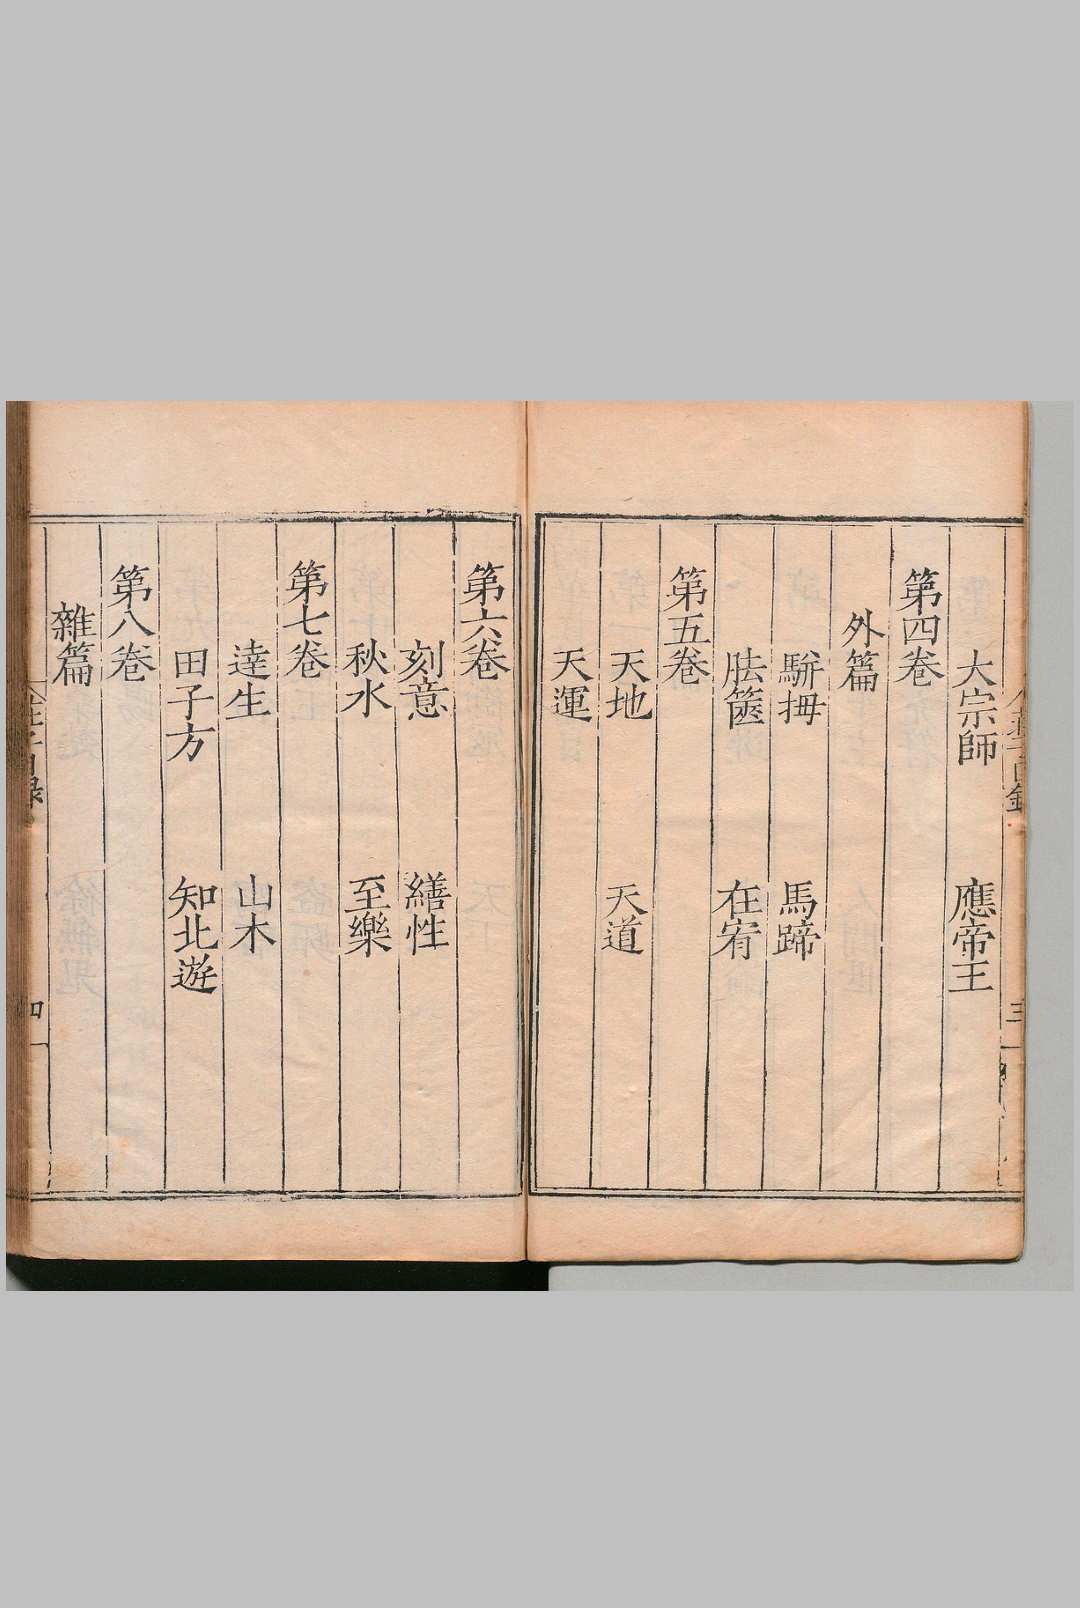 大宗師　應帝王
第四卷
外篇
駢拇　馬蹄
胠篋　在宥
第五卷
天地　天道
天運
第六卷
刻意　繕性
秋水　至樂
第七卷
達生　山木
田子方　知北遊
第八卷
雜篇